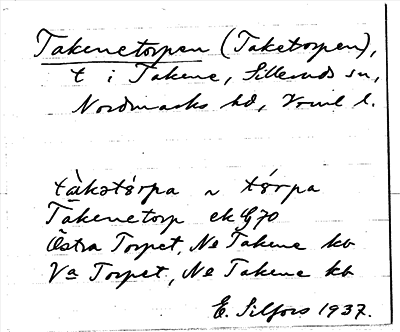 Takenetorpen (Taketorpen),
t i Takene, Silleruds sn,
Nordmarks hd, Vrml l.
tàkətórpa ~ tórpa
Takenetorp ek G 70
Östra Torpet, Ne Takene kb
Va Torpet, Ne Takene kb
E. Silfors 1937.